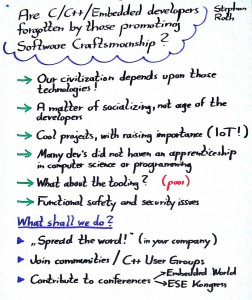 Are C/C++/Embedded developers
forgotten by those promoting
Software Craftsmanship?
Stephan
Roth
→ Our civilization depends upon those
technologies!
→ A matter of socializing, not age of the
developers
→ Cool projects, with raising importance (IoT!)
→ Many dev's did not haven an apprenticeship
in computer science or programming
→ What about the tooling? (poor)
→ Functional safety and security issues
What shall we do?
▶ „Spread the word!" (in your company)
▶ Join communities / C++ User Groups
▶ Contribute to conferences → Embedded World
→ ESE Kongress